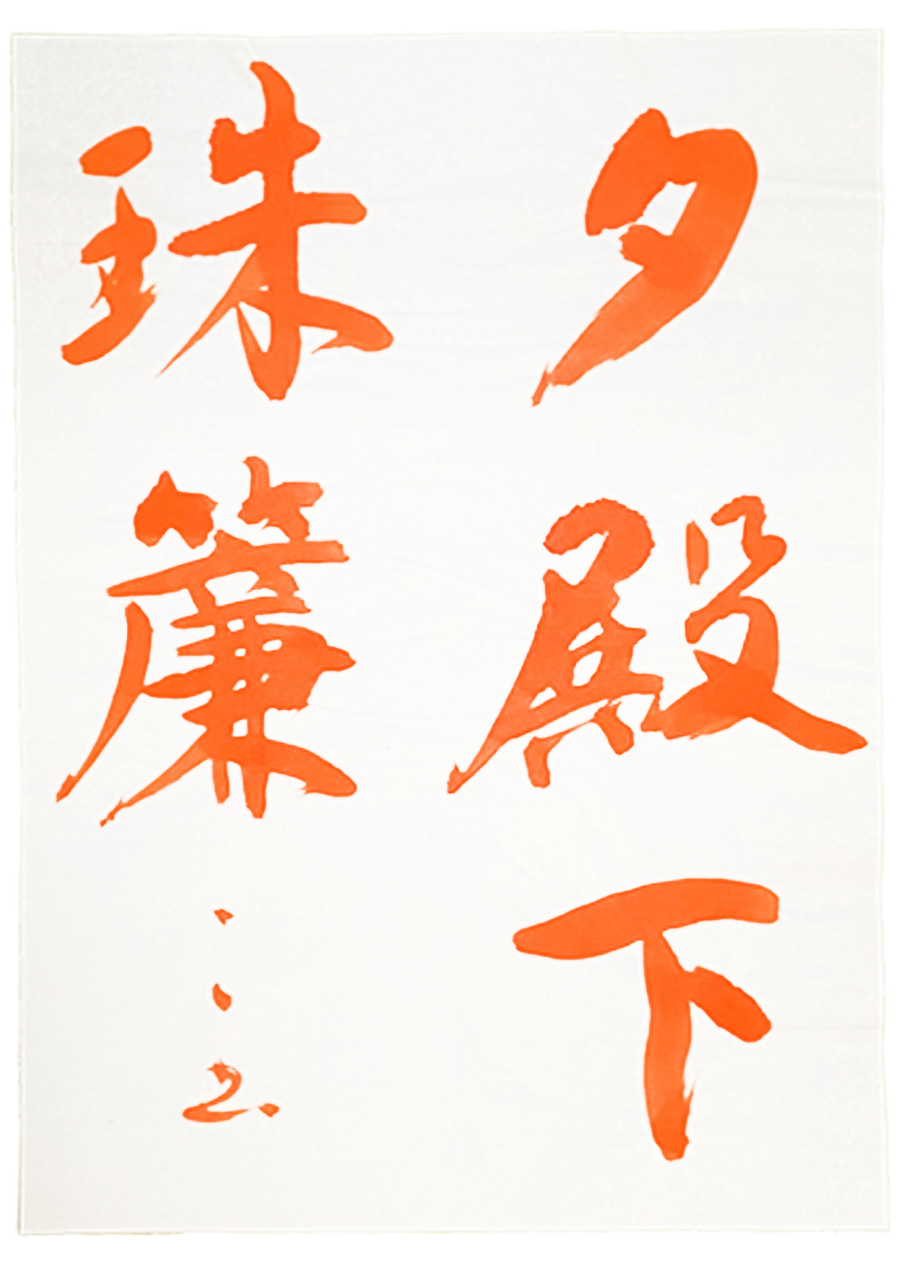 夕殿下
珠簾